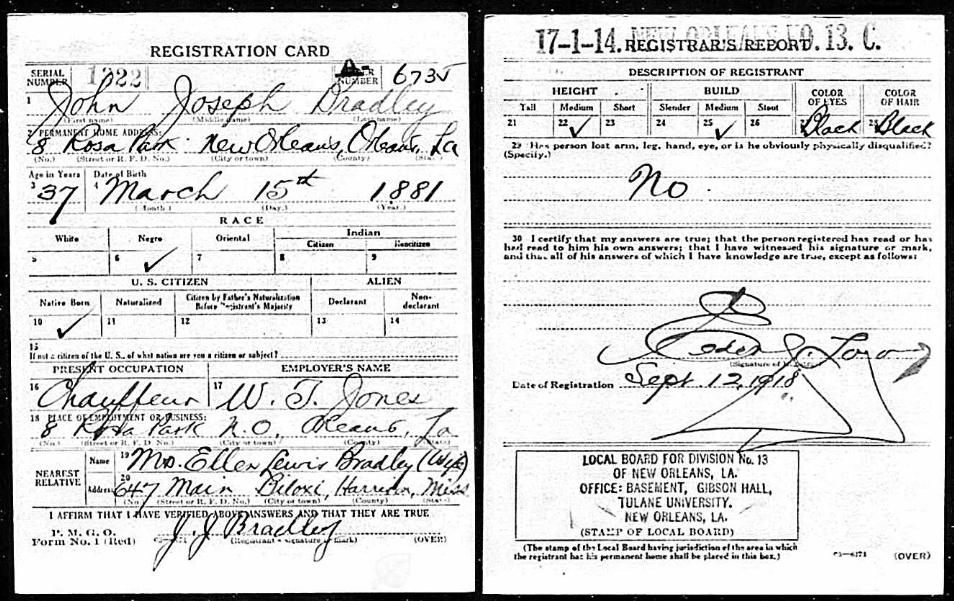 REGISTRATION CARD
SERIAL NUMBER 1322 ORDER NUMBER 6735
1 John Joseph Bradley
(First name) (Middle name) (Last name)
2 PERMANENT HOME ADDRESS:
8 Rosa Park New Orleans, Orleans, La
(No.) (Street or R. F. D. No.) (City or town) (County) (State)
Age in Years Date of Birth
3 37 4 March 15th 1881
(Month.) (Day.) (Year.)
RACE
White Negro Oriental Indian
Citizen Noncitizen
5 6 ✓ 7 8 9
U. S. CITIZEN ALIEN
Native Born Naturalized Citizen by Father's Naturalization Before Registrant's Majority Declarant Non-declarant
10 ✓ 11 12 13 14
15
If not a citizen of the U. S., of what nation are you a citizen or subject?
PRESENT OCCUPATION EMPLOYER'S NAME
16 Chauffeur 17 W. T. Jones
18 PLACE OF EMPLOYMENT OR BUSINESS:
8 Rosa Park N.O, Orleans, La
(No.) (Street or R. F. D. No.) (City or town) (County) (State)
NEAREST RELATIVE
Name 19 Mrs. Ellen Lewis Bradley (Wife)
Address 20 647 Main Biloxi, Harrison, Miss
(No.) (Street or R. F. D. No.) (City or town) (County) (State)
I AFFIRM THAT I HAVE VERIFIED ABOVE ANSWERS AND THAT THEY ARE TRUE
P. M. G. O.
Form No. 1 (Red) J. J Bradley
(Registrant's signature or mark) (OVER)
17-1-14. NEW ORLEANS NO. 13. C.
REGISTRAR'S REPORT
DESCRIPTION OF REGISTRANT
HEIGHT BUILD COLOR OF EYES COLOR OF HAIR
Tall Medium Short Slender Medium Stout
21 22 ✓ 23 24 25 ✓ 26 27 Black 28 Black
29 Has person lost arm, leg, hand, eye, or is he obviously physically disqualified?
(Specify.)
No.
30 I certify that my answers are true; that the person registered has read or has
had read to him his own answers; that I have witnessed his signature or mark,
and that all of his answers of which I have knowledge are true, except as follows:
(Signature of Registrar)
Date of Registration Sept 12, 1918
LOCAL BOARD FOR DIVISION No. 13
OF NEW ORLEANS, LA.
OFFICE: BASEMENT, GIBSON HALL,
TULANE UNIVERSITY.
NEW ORLEANS, LA.
(STAMP OF LOCAL BOARD)
(The stamp of the Local Board having jurisdiction of the area in which
the registrant has his permanent home shall be placed in this box.)
(OVER)